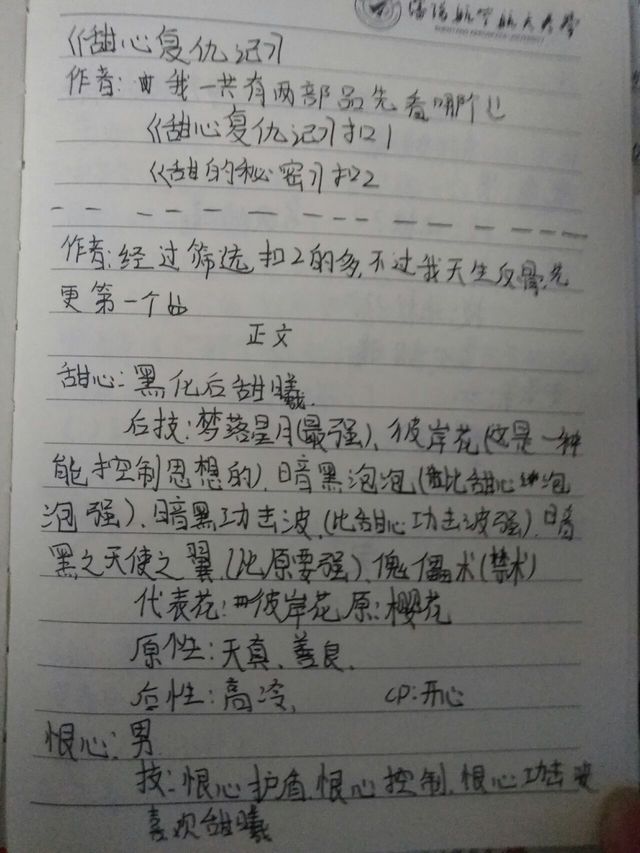 沈阳航空航天大学
《甜心复仇记》
作者:我一共有两部品先看哪个
《甜心复仇记》扣1
《甜的秘密》扣2
作者:经过筛选,扣2的多,不过我天生反骨,先
更第一个
正文
甜心:黑化后甜曦.
后技:梦落星月(最强)、彼岸花(这是一种
能控制思想的)、暗黑泡泡(比甜心泡
泡强)、暗黑功击波,(比甜心功击波强)、暗
黑之天使之翼,(比原要强)、傀儡术(禁术)
代表花:彼岸花 原:樱花
原性:天真、善良.
后性:高冷, CP:开心
恨心:男
技:恨心护盾,恨心控制,恨心功击波
喜欢甜曦